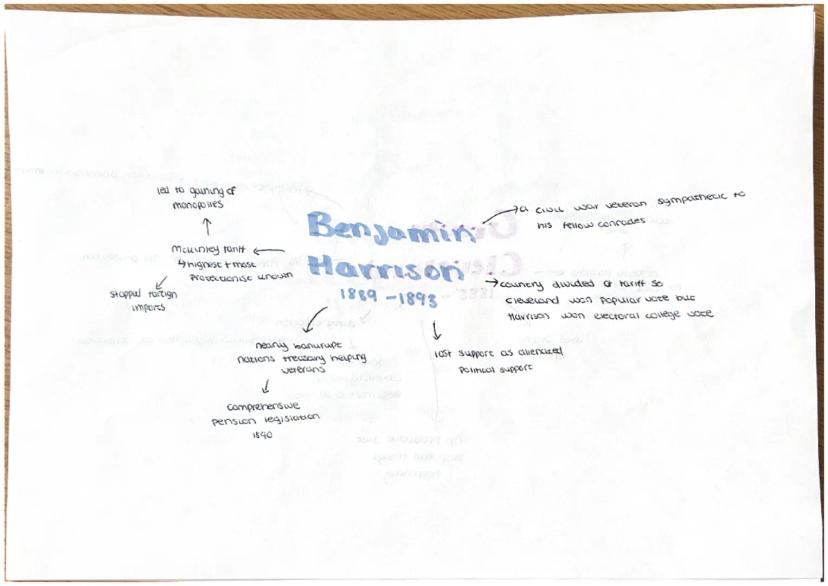 Benjamin
Harrison
1889 - 1893
→ a civil war veteran sympathetic to
his fellow comrades
→ country divided of tariff so
Cleveland won popular vote but
Harrison won electoral college vote
lost support as alienated
political support
nearly bankrupt
nations treasury helping
veterans
comprehensive
pension legislation
1890
Mckinley tariff
↳ highest + most
protectionist known
led to gaining of
monopolies
stopped foreign
imports